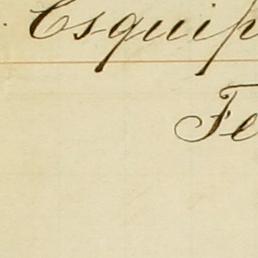 Esquip
Fe